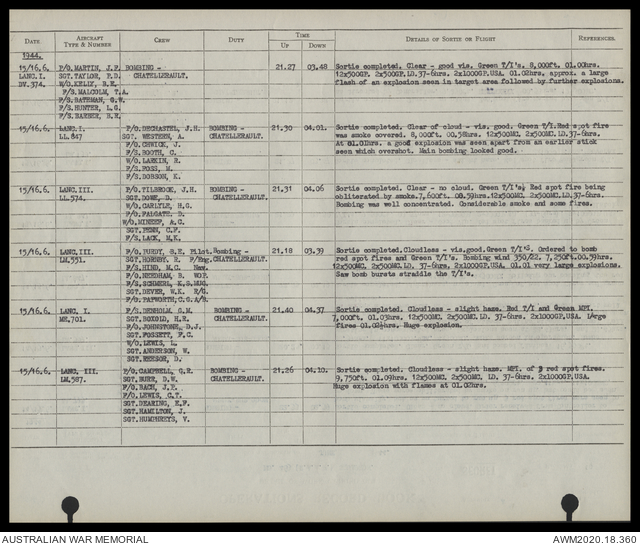 TIME
DATE AIRCRAFT TYPE & NUMBER CREW DUTY UP DOWN DETAILS OF SORTIE OR FLIGHT REFERENCES.
1944.
15/16.6. LANC.I. DV.374. BOMBING - CHATELLERAULT. 21.27 03.48
P/O. MARTIN, J.F.
SGT. TAYLOR, P.D.
W/O. KELLY, B.E.
F/S. MALCOLM, T.A.
F/S. BATEMAN, G.W.
F/S. HUNTER, L.G.
F/S. BARBER, B.R.
Sortie completed. Clear - good vis. Green T/I's. 8,000ft. 01.00hrs.
12x500GP. 2x500GP.LD.37-6hrs. 2x1000GP.USA. 01.02hrs, approx. a large
flash of an explosion seen in target area followed by further explosions.
15/16.6. LANC.I. LL.847 BOMBING - CHATELLERAULT. 21.30 04.01.
P/O. DECHASTEL, J.H.
SGT. WESTERN, A.
F/O. CHWICK, J.
F/S. BOOTH, C.
W/O. LARKIN, R.
F/S. FOSS, M.
F/S. DOBSON, K.
Sortie completed. Clear of cloud - vis. good. Green T/I.Red spot fire
was smoke covered. 8,000ft. 00.58hrs. 12x500MC. 2x500MC.LD.37-6hrs.
At 01.01hrs a good explosion was seen apart from an earlier stick
seen which overshot. Main bombing looked good.
15/16.6. LANC.III. LL.574. BOMBING - CHATELLERAULT. 21.31 04.06
P/O. TILBROOK, J.H.
SGT. DOWE, D.
W/O. CARLYLE, H.G.
F/O. FALGATE, D.
W/O. MINEEF, A.C.
SGT. PENN, C.F.
F/S. LACK, M.K.
Sortie completed. Clear - no cloud. Green T/I's, Red spot fire being
obliterated by smoke.7,600ft. 08.59hrs.12x500MC. 2x500MC.LD.37-6hrs.
Bombing was well concentrated. Considerable smoke and some fires.
15/16.6. LANC.III. LM.551. Bombing - CHATELLERAULT. 21.18 03.39
F/O. PURDY, G.E. Pilot.
SGT. HORNBY, R. F/Eng.
F/S. HIND, M.C. Nav.
F/O. NEEDHAM, B. WOP.
F/S. SCHOMERL, K.S. MUG.
SGT. DEVER, W.K. R/G.
F/O. PAPWORTH, C.G. A/B.
Sortie completed.Cloudless - vis.good.Green T/I'S. Ordered to bomb
red spot fires and Green T/I's. Bombing wind 350/22. 7,250ft.00.59hrs.
12x500MC. 2x500MC. LD. 37-6hrs. 2x1000GP.USA. 01.01 very large explosions.
Saw bomb bursts straddle the T/I's.
15/16.6. LANC. I. ME.701. BOMBING - CHATELLERAULT. 21.40 04.37
F/S. DENHOLM G.M.
SGT. BOXOLD, H.R.
F/O. JOHNSTONE, D.J.
SGT. FOSSETT, F.C.
W/O. LEWIS, L.
SGT. ANDERSON, W.
SGT. REESOR, D.
Sortie completed. Cloudless - slight haze. Red T/I and Green MPI.
7,000ft. 01.03hrs. 12x500MC. 2x500MC.LD. 37-6hrs. 2x1000GP.USA. Large
fires 01.02½hrs. Huge explosion.
15/16.6. LANC. III. LM.587. BOMBING - CHATELLERAULT. 21.26 04.10.
F/O. CAMPBELL, G.R.
SGT. BURR, D.W.
F/O. BACH, J.F.
F/O. LEWIS, C.T.
SGT. DEARING, E.F.
SGT. HAMILTON, J.
SGT. HUMPHREYS, V.
Sortie completed. Cloudless - slight haze. MPI. of 3 red spot fires.
9,750ft. 01.09hrs. 12x500MC. 2x500MC. LD. 37-6hrs. 2x1000GP.USA.
Huge explosion with flames at 01.02hrs.
AUSTRALIAN WAR MEMORIAL AWM2020.18.360